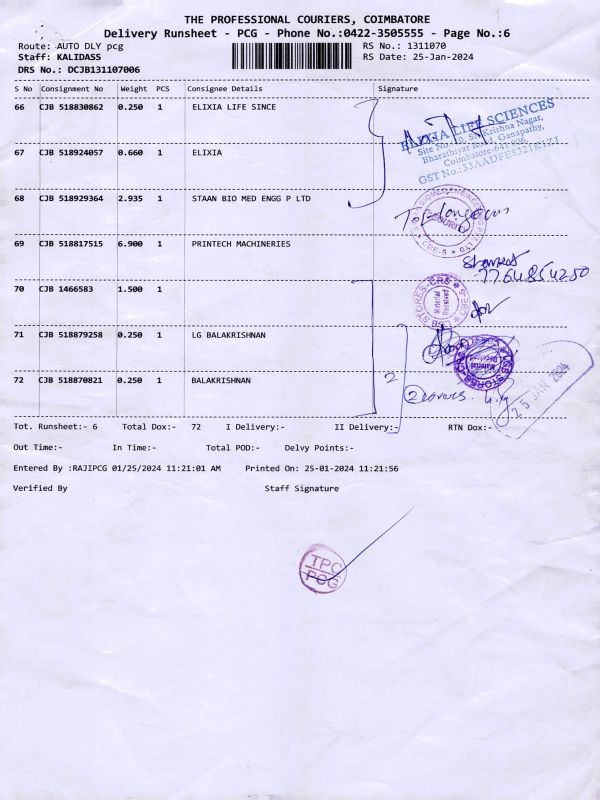 THE PROFESSIONAL COURIERS, COIMBATORE
Delivery Runsheet - PCG - Phone No.:0422-3505555 - Page No.:6
Route: AUTO DLY pcg RS No.: 1311070
Staff: KALIDASS RS Date: 25-Jan-2024
DRS No.: DCJB131107006
S No Consignment No Weight PCS Consignee Details Signature
66 CJB 518830862 0.250 1 ELIXIA LIFE SINCE
ELIXIA LIFE SCIENCES
Krishna Nagar,
Bharathiyar Ganapathy,
Coimbatore-641 006.
67 CJB 518924057 0.660 1 ELIXIA
68 CJB 518929364 2.935 1 STAAN BIO MED ENGG P LTD
SECURITY
69 CJB 518817515 6.900 1 PRINTECH MACHINERIES
70 CJB 1466583 1.500 1
Material Received
71 CJB 518879258 0.250 1 LG BALAKRISHNAN
Material Received
72 CJB 518870821 0.250 1 BALAKRISHNAN
2
2 covers
25 JAN 2024
Tot. Runsheet:- 6 Total Dox:- 72 I Delivery:- II Delivery:- RTN Dox:-
Out Time:- In Time:- Total POD:- Delvy Points:-
Entered By :RAJIPCG 01/25/2024 11:21:01 AM Printed On: 25-01-2024 11:21:56
Verified By Staff Signature
TPC
PCG